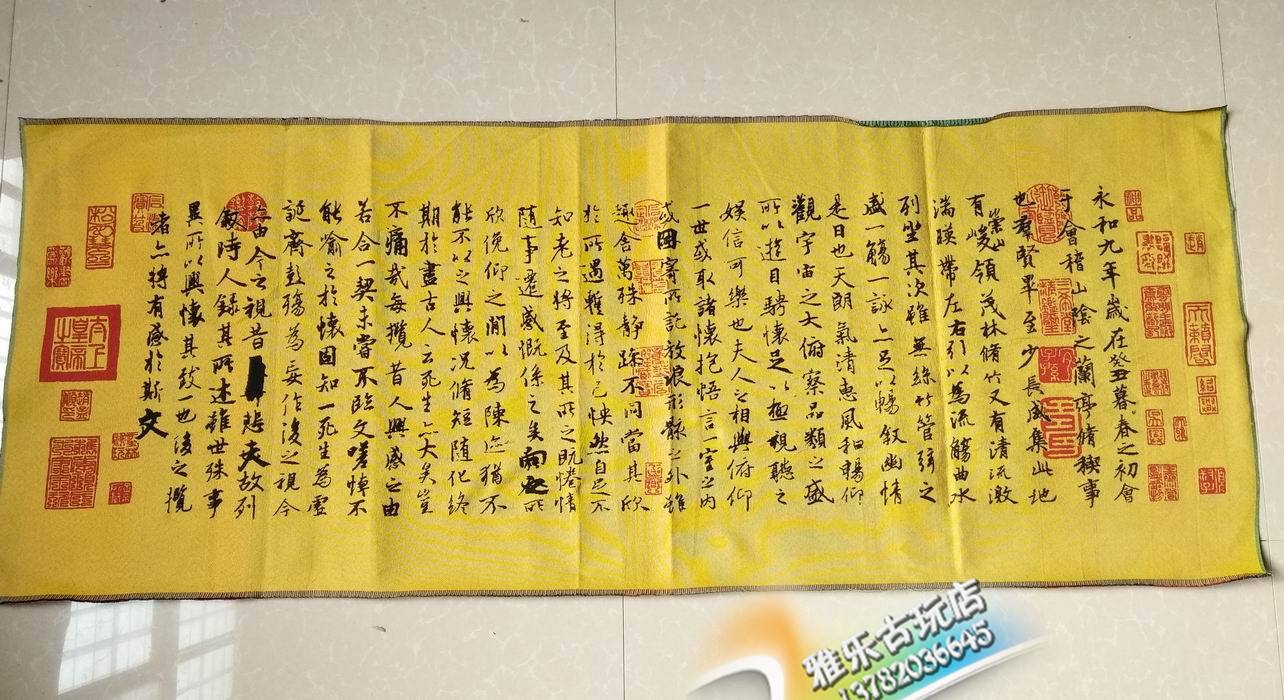 永和九年歲在癸丑暮春之初會
于會稽山陰之蘭亭脩稧事
也羣賢畢至少長咸集此地
有崇山峻領茂林脩竹又有清流激
湍暎帶左右引以為流觴曲水
列坐其次雖無絲竹管弦之
盛一觴一詠亦足以暢敘幽情
是日也天朗氣清惠風和暢仰
觀宇宙之大俯察品類之盛
所以遊目騁懷足以極視聽之
娛信可樂也夫人之相與俯仰
一世或取諸懷抱悟言一室之內
或因寄所託放浪形骸之外雖
趣舍萬殊靜躁不同當其欣
於所遇暫得於己怏然自足不
知老之將至及其所之既惓情
隨事遷感慨係之矣向之所
欣俛仰之閒以為陳迹猶不
能不以之興懷況脩短隨化終
期於盡古人云死生亦大矣豈
不痛哉每攬昔人興感之由
若合一契未嘗不臨文嗟悼不
能喻之於懷固知一死生為虛
誕齊彭殤為妄作後之視今
亦由今之視昔悲夫故列
敘時人錄其所述雖世殊事
異所以興懷其致一也後之攬
者亦將有感於斯文
太上皇帝之寶
天籟閣
雅乐古玩店
13782036645